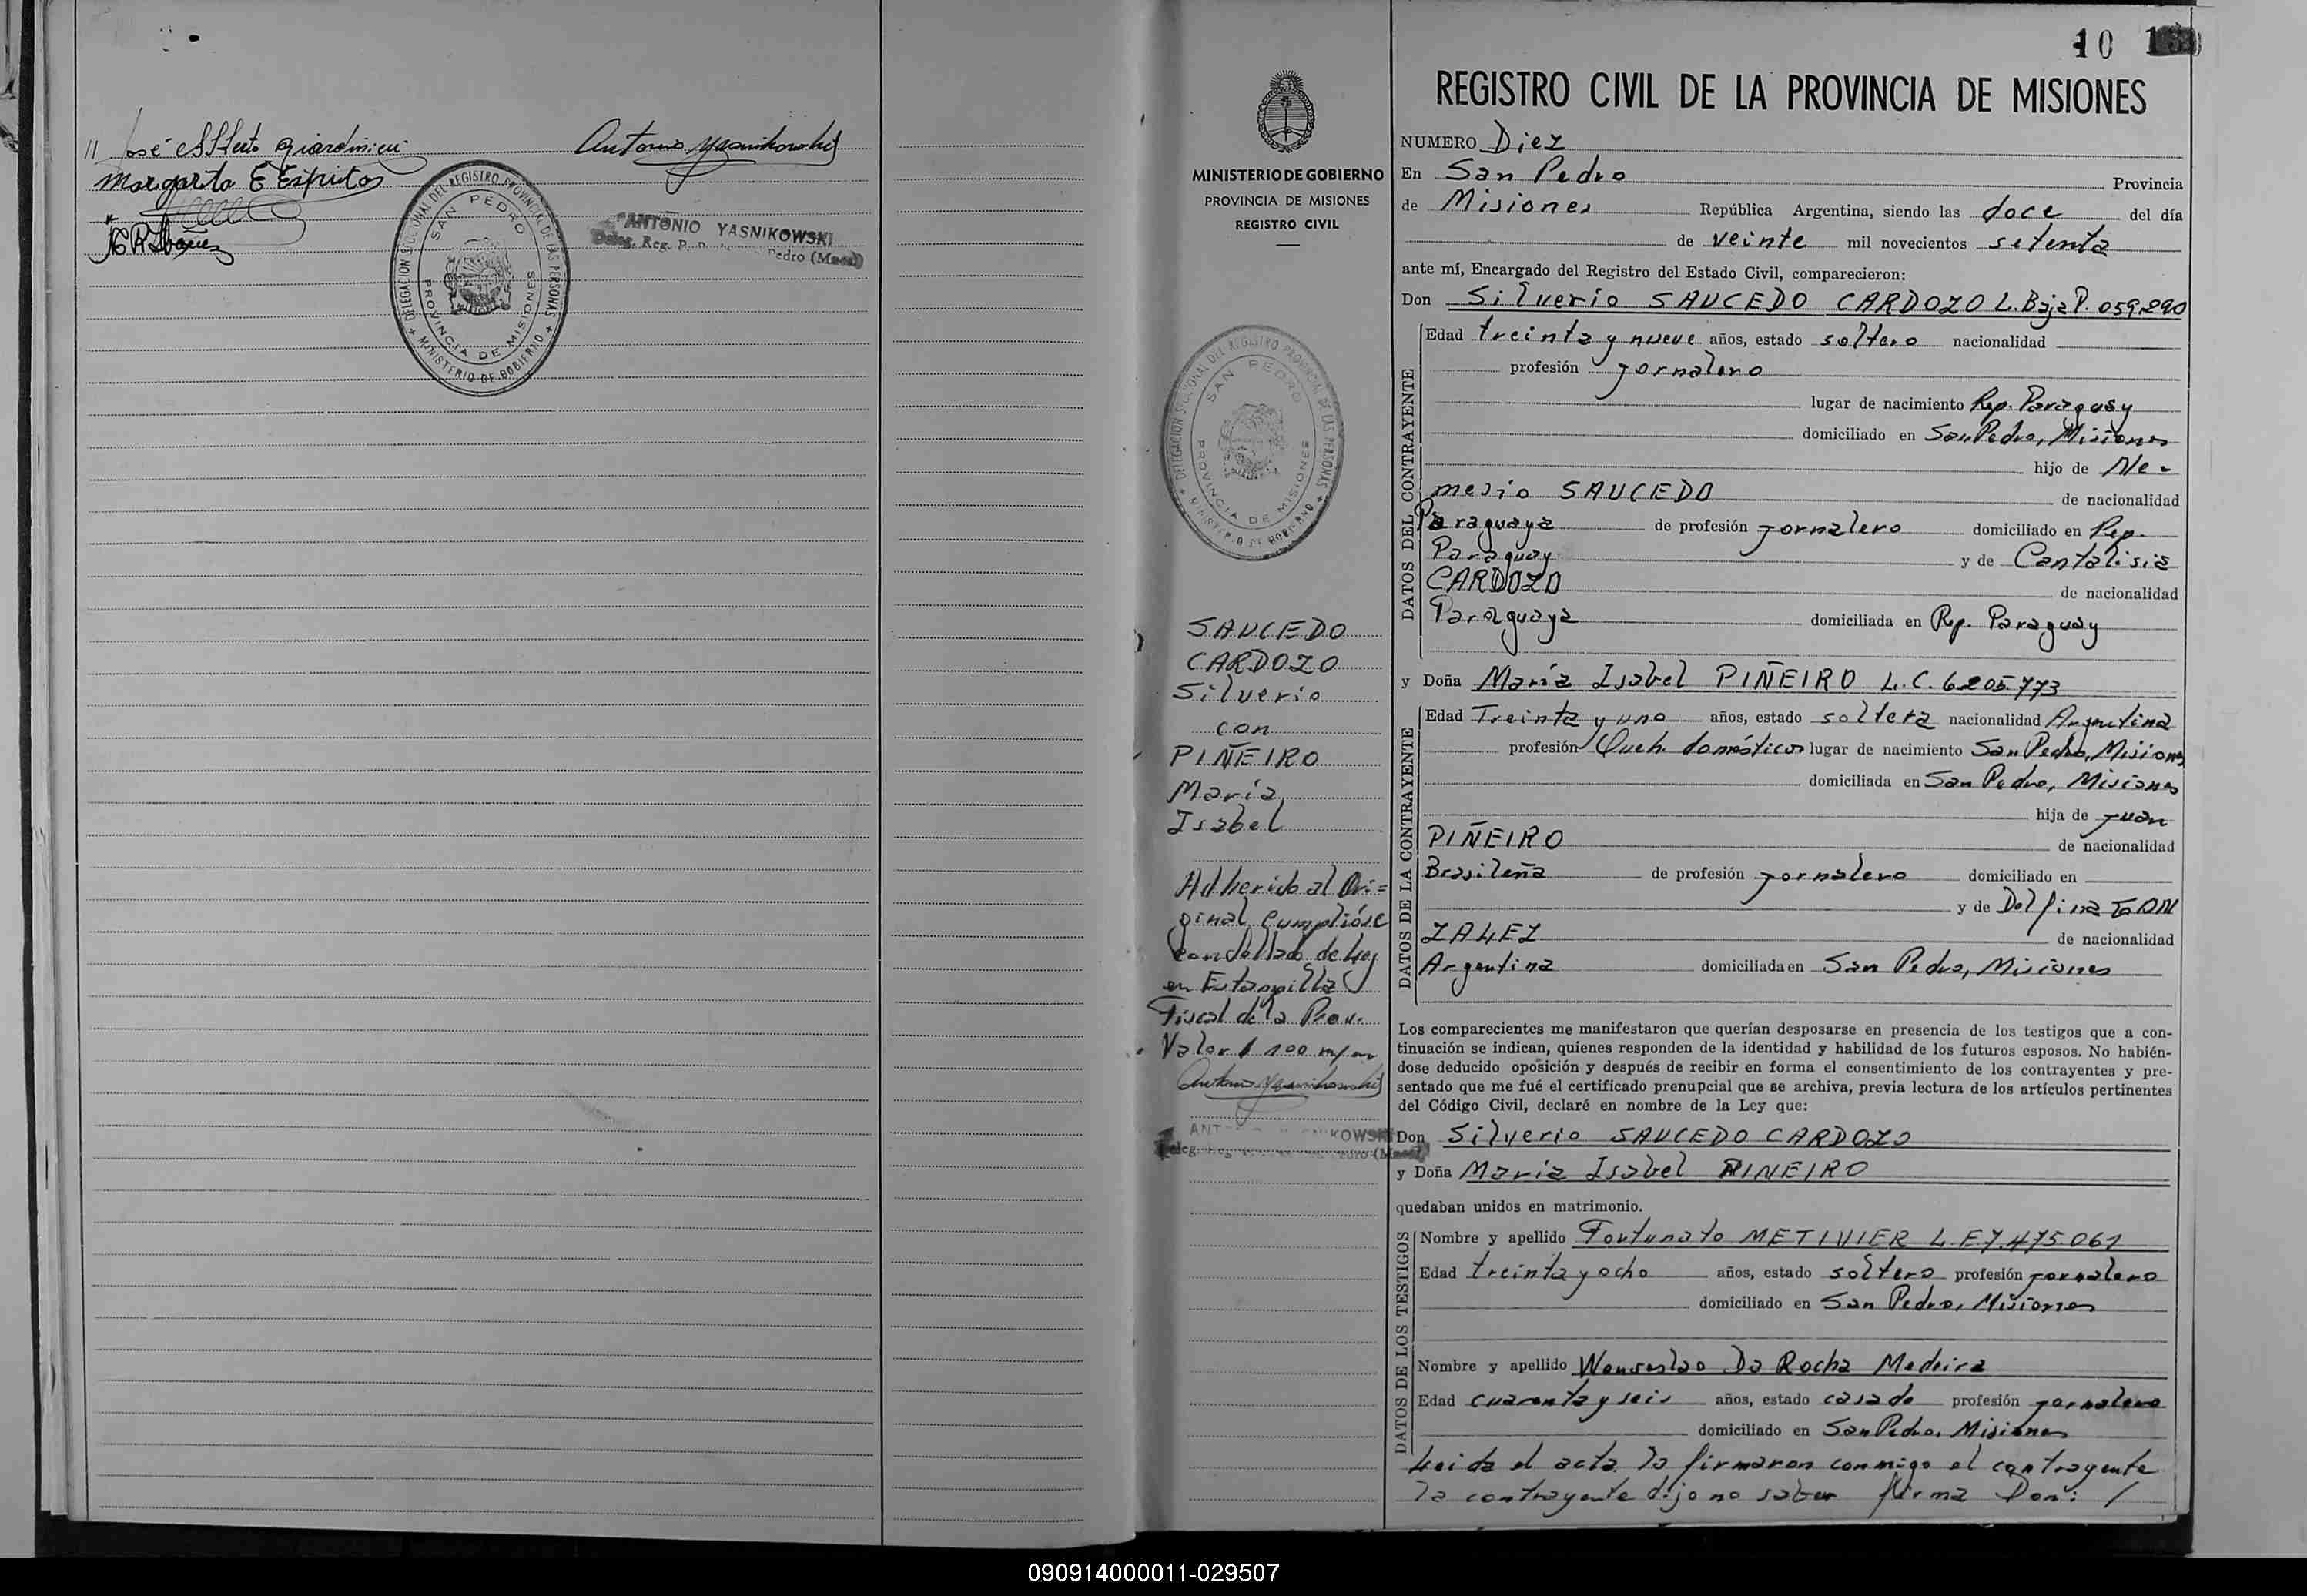 José Alberto
Antonio Yasnikowski
Margarita E Espiritos
DELEGACION SECCIONAL DEL REGISTRO PROVINCIAL DE LAS PERSONAS
SAN PEDRO
PROVINCIA DE MISIONES
MINISTERIO DE GOBIERNO
ANTONIO YASNIKOWSKI
Deleg. Reg. P. Pedro (Mnes.)
10
REGISTRO CIVIL DE LA PROVINCIA DE MISIONES
MINISTERIO DE GOBIERNO
PROVINCIA DE MISIONES
REGISTRO CIVIL
DELEGACION SECCIONAL DEL REGISTRO PROVINCIAL DE LAS PERSONAS
SAN PEDRO
PROVINCIA DE MISIONES
MINISTERIO DE GOBIERNO
SAUCEDO
CARDOZO
Silverio
con
PIÑEIRO
María
Isabel
Adherido al Ori=
ginal Cumplióse
con sellado de Ley
en Estampilla
Fiscal de la Prov.
Valor $ 100 m/n
Antonio Yasnikowski
NUMERO Diez
En San Pedro Provincia
de Misiones República Argentina, siendo las doce del día
de veinte mil novecientos setenta
ante mí, Encargado del Registro del Estado Civil, comparecieron:
Don Silverio SAUCEDO CARDOZO L. Baja P. 059.290
DATOS DEL CONTRAYENTE
Edad treinta y nueve años, estado soltero nacionalidad
profesión jornalero
lugar de nacimiento Rep. Paraguay
domiciliado en San Pedro, Misiones
hijo de Ne-
mesio SAUCEDO de nacionalidad
Paraguaya de profesión jornalero domiciliado en Rep.
Paraguay y de Cantalisia
CARDOZO de nacionalidad
Paraguaya domiciliada en Rep. Paraguay
y Doña María Isabel PIÑEIRO L.C. 6205773
DATOS DE LA CONTRAYENTE
Edad Treinta y uno años, estado soltera nacionalidad Argentina
profesión Queh. domésticos lugar de nacimiento San Pedro, Misiones
domiciliada en San Pedro, Misiones
hija de Juan
PIÑEIRO de nacionalidad
Brasileña de profesión jornalero domiciliado en
y de Delfina GON
ZALEZ de nacionalidad
Argentina domiciliada en San Pedro, Misiones
Los comparecientes me manifestaron que querían desposarse en presencia de los testigos que a con-
tinuación se indican, quienes responden de la identidad y habilidad de los futuros esposos. No habién-
dose deducido oposición y después de recibir en forma el consentimiento de los contrayentes y pre-
sentado que me fué el certificado prenupcial que se archiva, previa lectura de los artículos pertinentes
del Código Civil, declaré en nombre de la Ley que:
Don Silverio SAUCEDO CARDOZO
y Doña Maria Isabel PINEIRO
quedaban unidos en matrimonio.
DATOS DE LOS TESTIGOS
Nombre y apellido Fortunato METIVIER L.E 7.475.061
Edad treinta y ocho años, estado soltero profesión jornalero
domiciliado en San Pedro, Misiones
Nombre y apellido Wenseslao Da Rocha Madeira
Edad cuarenta y seis años, estado casado profesión jornalero
domiciliado en San Pedro, Misiones
Leida el acta la firmaron conmigo el contrayente
la contrayente dijo no saber firma Don: /
090914000011-029507